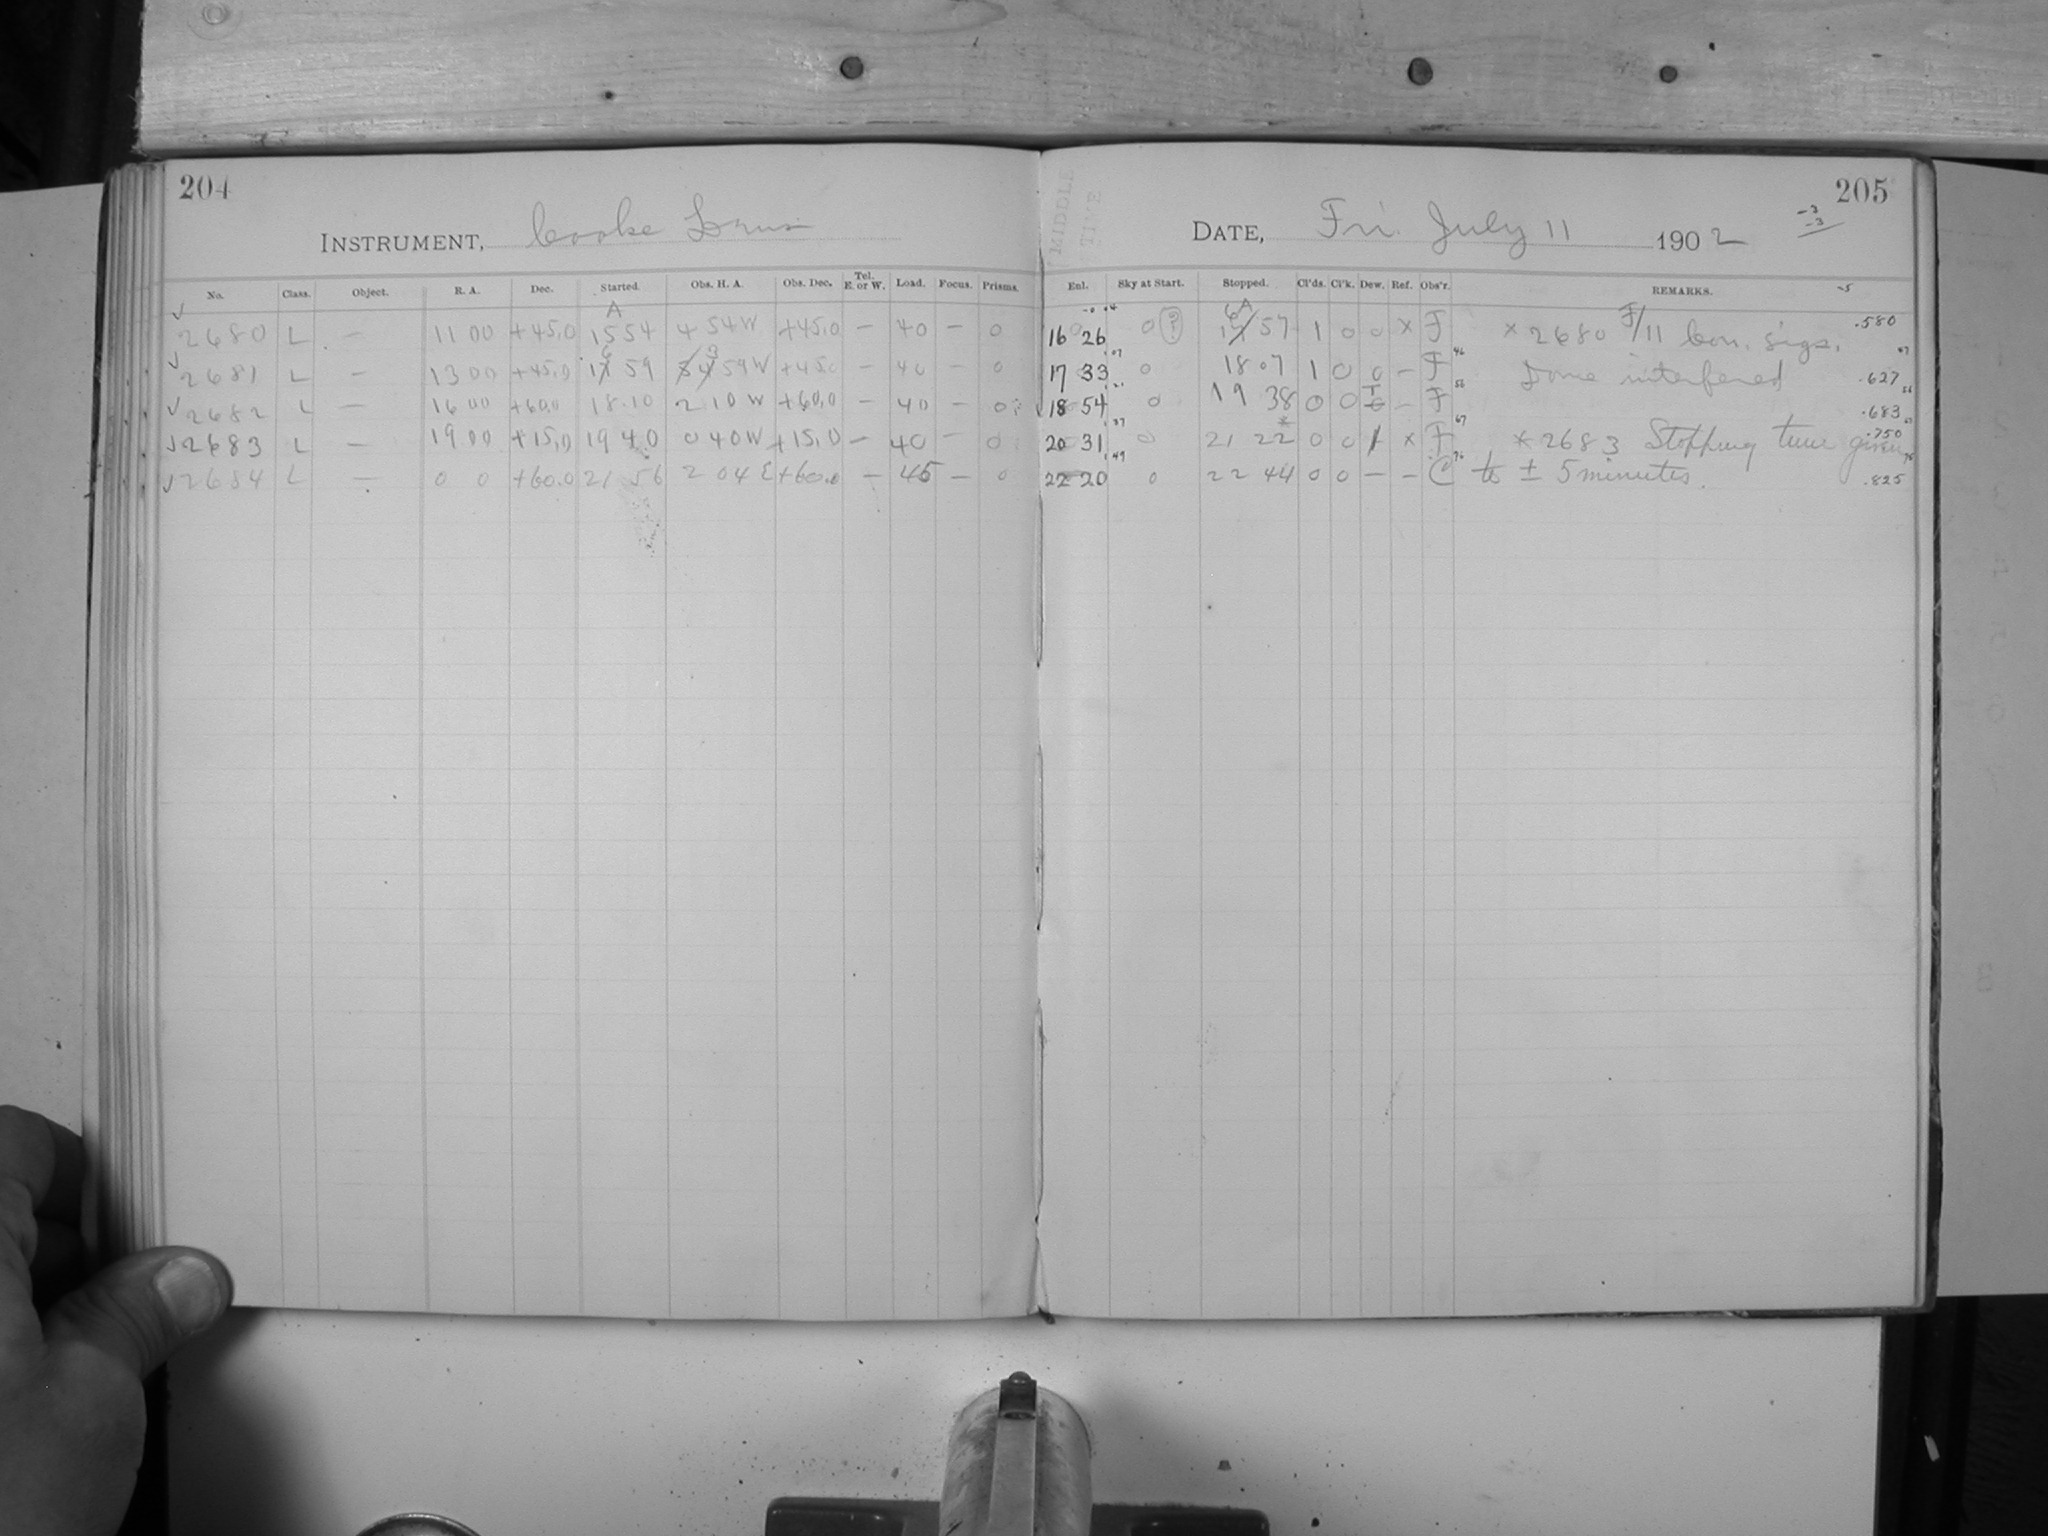 204
INSTRUMENT, Cooke Lens
No. Class. Object. R. A. Dec. Started. Obs. H. A. Obs. Dec. Tel. E. or W. Load. Focus. Prisms.
A
√ 2680 L — 11 00 +45.0 15 54 4 54 W +45.0 — 40 — 0
√ 2681 L — 13 00 +45.0 16 59 3 59 W +45.0 — 40 — 0
√ 2682 L — 16 00 +60.0 18 10 2 10 W +60.0 — 40 — 0
√ 2683 L — 19 00 +15.0 19 40 0 40 W +15.0 — 40 — 0
√ 2684 L — 0 0 +60.0 21 56 2 04 E +60.0 — 45 — 0
205
MIDDLE TIME
DATE, Fri. July 11 1902
-3
-3
Enl. Sky at Start. Stopped. Cl'ds. Cl'k. Dew. Ref. Obs'r. REMARKS. -5
16 26 0 ? 16 57 1 0 0 × F × 2680 F/11 Con. sigs. .580
17 33 0 18 07 1 0 0 — F Dome interfered .627
18 54 0 19 38 0 0 — F .683
20 31 0 21 22 * 0 0 1 × F * 2683 Stopping time given .750
22 20 0 22 44 0 0 — — C to ± 5 minutes. .825